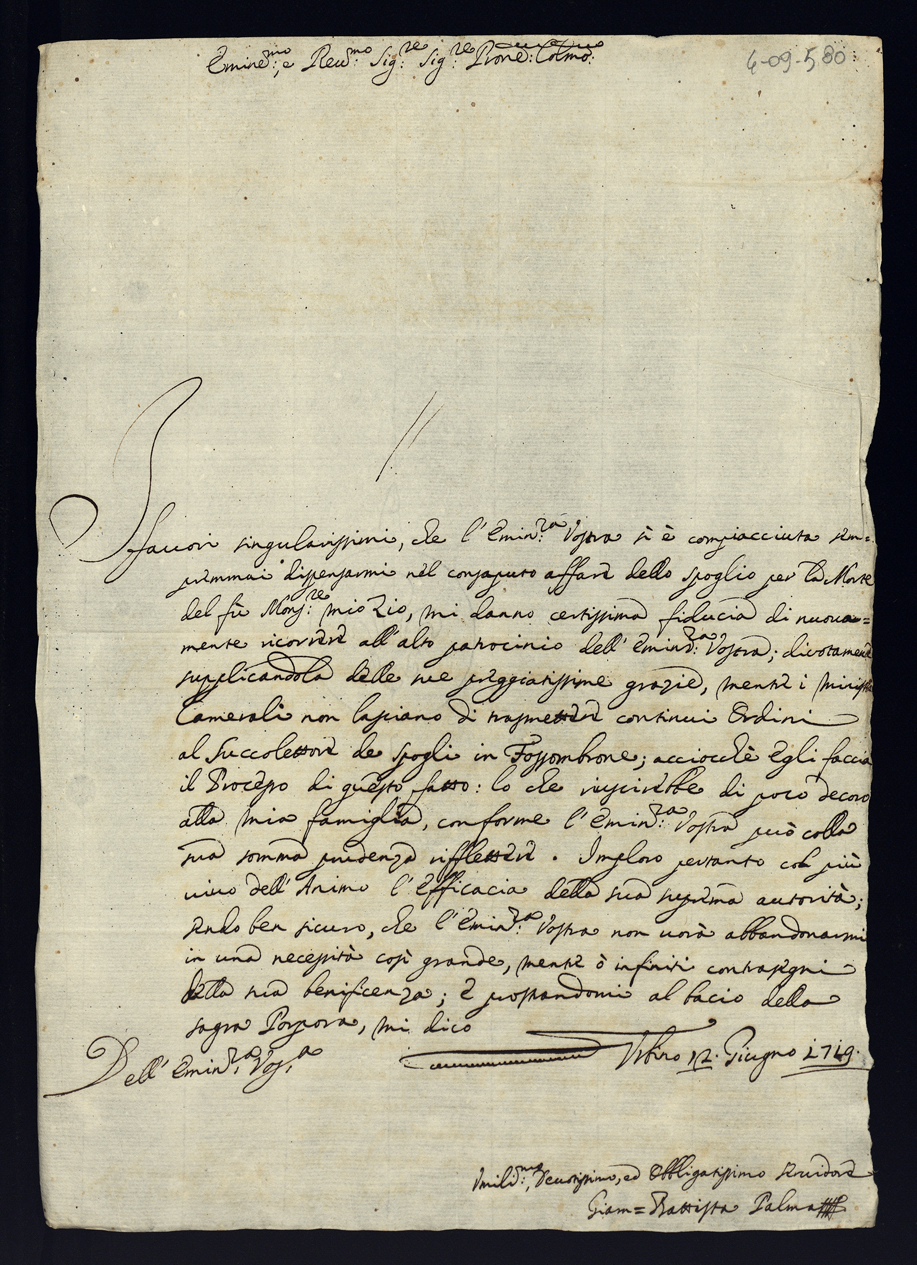 Emin.mo, e Reu.mo Sig.re Sig.re Prone Colmo.
6-09-580
I fauori singularissimi, che l'Emin.za Vostra si è compiacciuta sem=
premmai dispensarmi nel consaputo affare dello spoglio per la Morte
del fù Mons.re mio Zio, mi danno certissima fiducia di nuoua=
mente ricorrere all'alto patrocinio dell'Emin.za Vostra; diuotamente
supplicandola delle sue preggiatissime grazie, mentre i Ministri
Camerali non lasciano di trasmettere continui Ordini
al Succolettore de spogli in Fossombrone; acciocchè Egli faccia
il Processo di questo fatto: lo che riuscirebbe di poco decoro
alla mia famiglia, conforme l'Emin.za Vostra può colla
sua somma prudenza riflettere. Imploro pertanto col più
uiuo dell'Animo l'Efficacia della sua suprema autorità;
sendo ben sicuro, che l'Emin.za Vostra non uorà abbandonarmi
in una necessità così grande, mentre ò infiniti contrasegni
della sua benificenza; e prostandomi al bacio della
sagra Porpora, mi dico
Urbino 12. Giugno 1719.
Dell'Emin.za Vos.a
Umilis.mo, Deuotissimo, ed Obbligatissimo Seruidore
Giam=Battista Palma